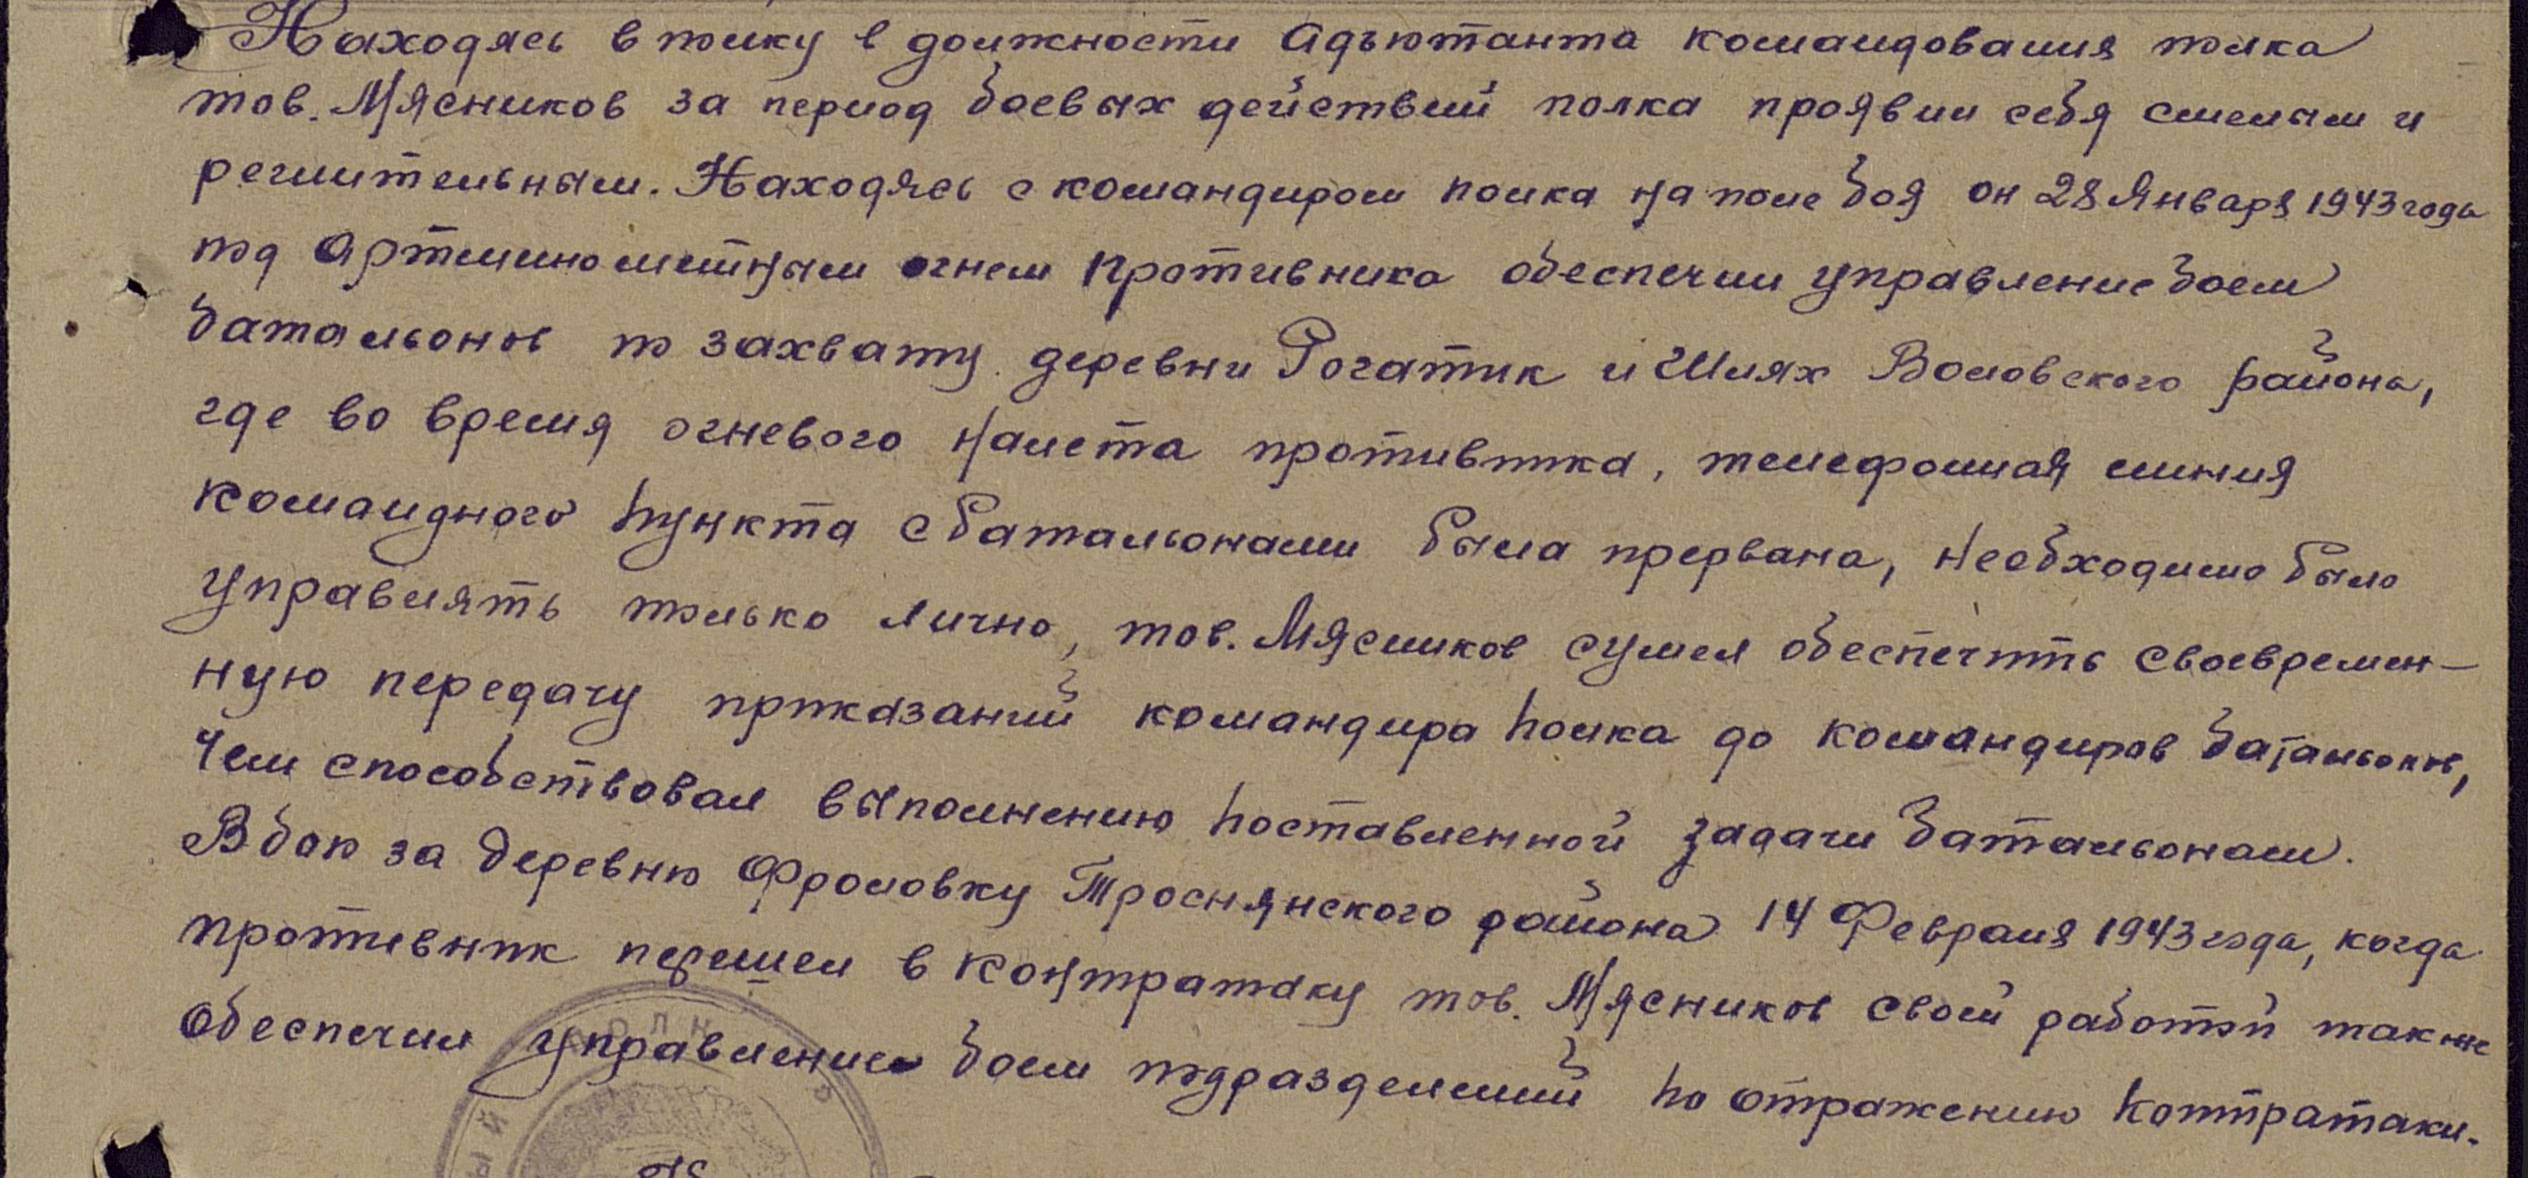 Находясь в полку в должности адъютанта командования полка
тов. Мясников за период боевых действий полка проявил себя смелым и
решительным. Находясь с командиром полка на поле боя он 28 января 1943 года
под артминометным огнем противника обеспечил управление боем
батальонов по захвату деревни Рогатик и Шлях Воловского района,
где во время огневого налета противника, телефонная линия
командного пункта с батальонами была прервана, необходимо было
управлять только лично, тов. Мясников сумел обеспечить своевремен-
ную передачу приказаний командира полка до командиров батальонов,
чем способствовал выполнению поставленной задачи батальонам.
В бою за деревню Фроловку Троснянского района 14 февраля 1943 года, когда
противник перешел в контратаку тов. Мясников своей работой также
обеспечил управление боем подразделений по отражению контратаки.